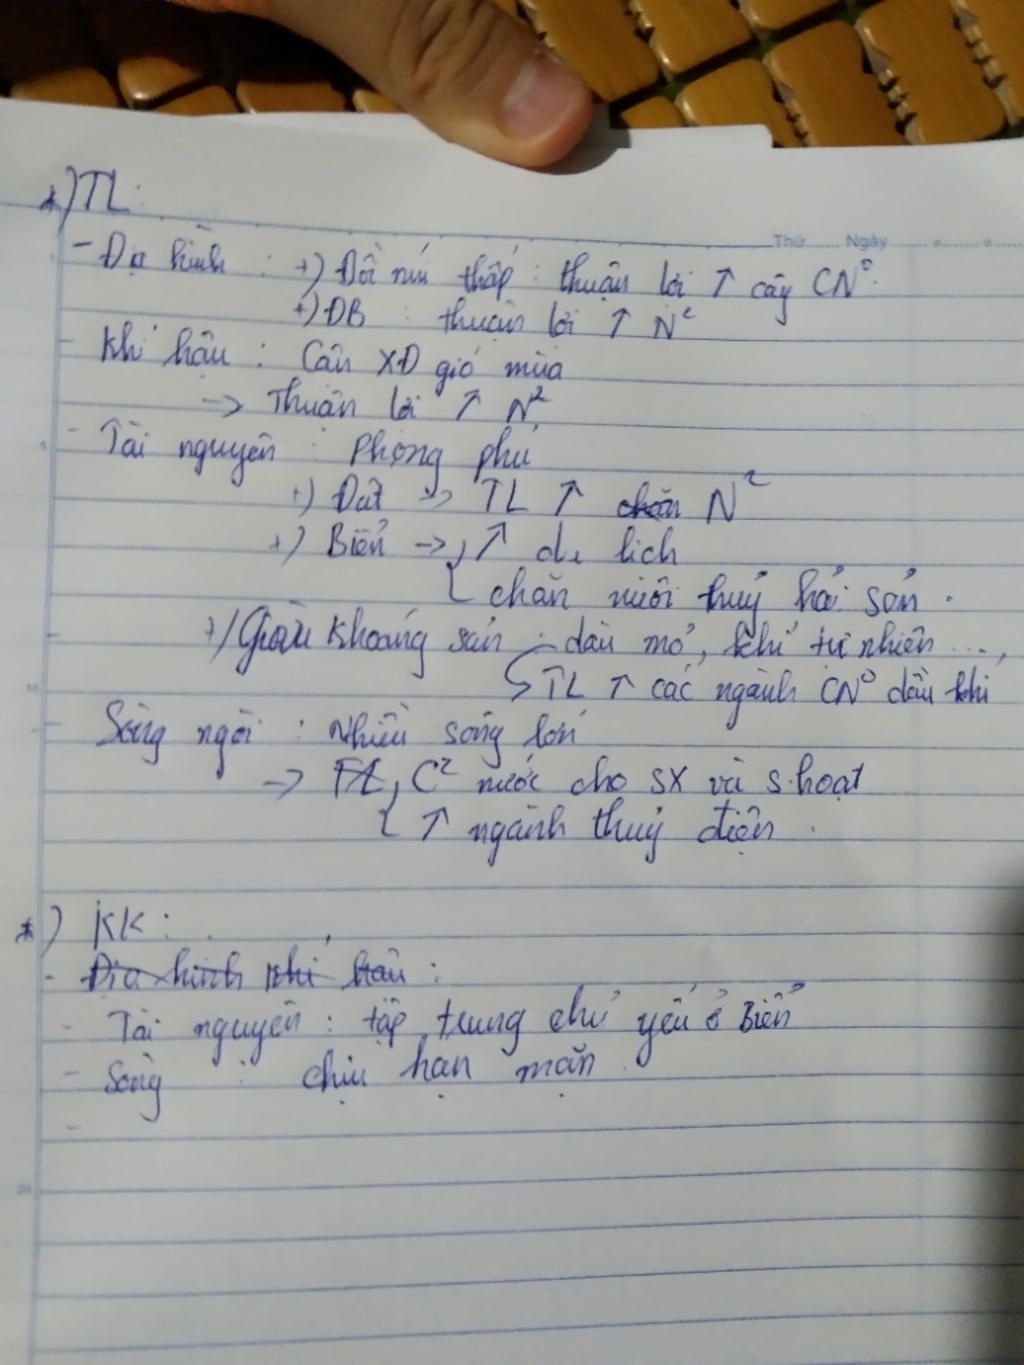 *) TL:
Thứ Ngày
- Địa hình : +) Đồi núi thấp : thuận lợi ↑ cây CN⁰.
+) ĐB : thuận lợi ↑ N²
- Khí hậu : Cận XĐ gió mùa
-> Thuận lợi ↑ N²
- Tài nguyên : Phong phú
+) Đất -> TL ↑ chăn N²
+) Biển -> ↑ du lịch
chăn nuôi thuỷ hải sản.
+) Giàu khoáng sản : dầu mỏ, khí tự nhiên ...,
TL ↑ các ngành CN⁰ dầu khí
Sông ngòi : Nhiều sông lớn
-> C² nước cho SX và s.hoạt
↑ ngành thuỷ điện.
*) KK :
- Địa hình khí hậu :
- Tài nguyên : tập trung chủ yếu ở Biển
- Sông : chịu hạn mặn.
-